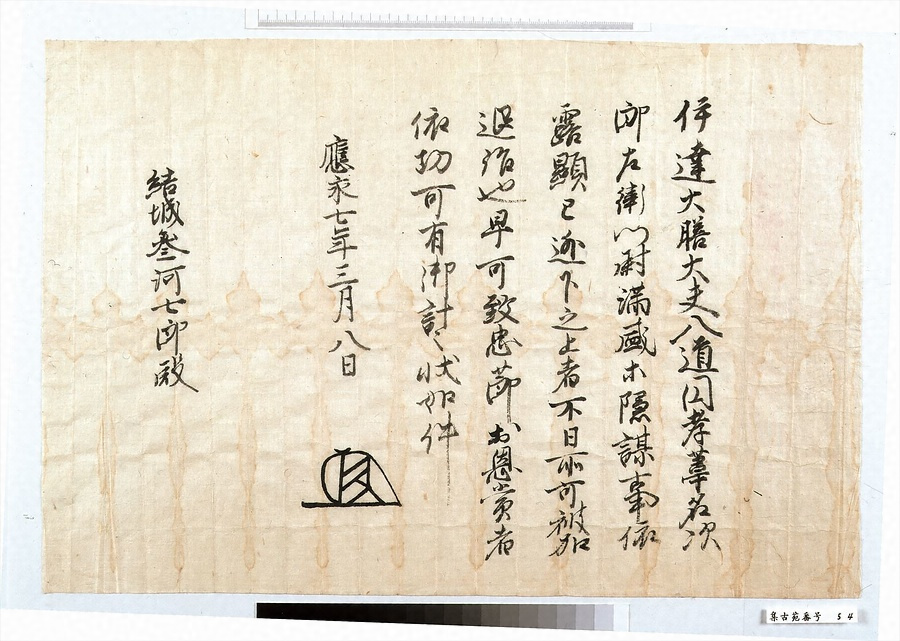 伊達大膳大夫入道円孝葦名次
郎左衛門尉満盛等隠謀事依
露顕已逃下之上者不日所可被加
退治也早可致忠節於恩賞者
依功可有御計之状如件
應永七年三月八日
結城参河七郎殿
集古苑番号 54